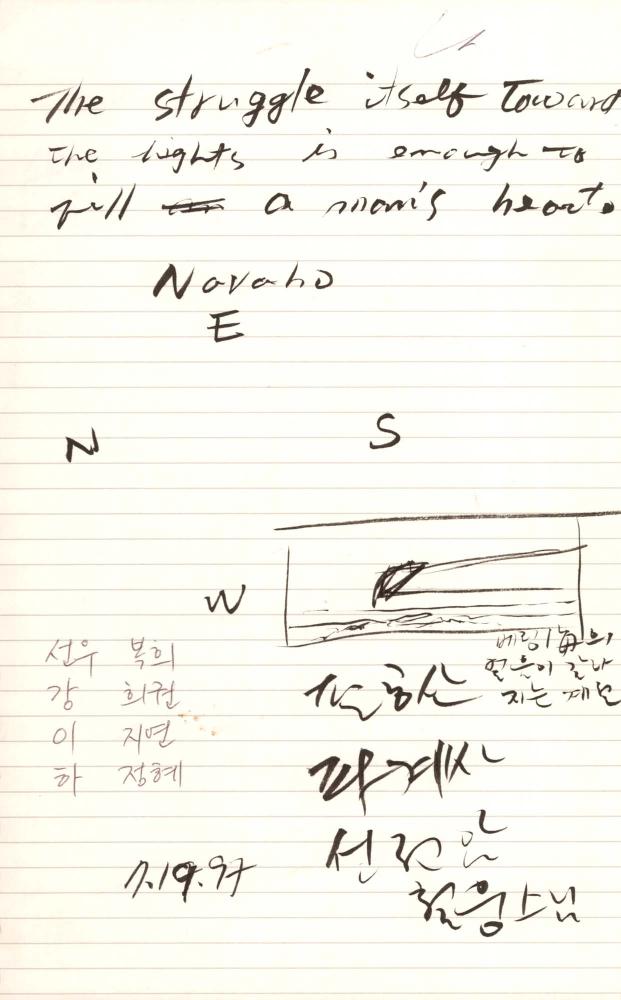 The struggle itself Toward
the hights is enough to
fill a man's heart.
Navaho
E
N S
W
베링海의
얼음이 갈라
지는
선우 복희
강 희권
이 지연
하 정혜
파계사
철웅스님
7.19.97